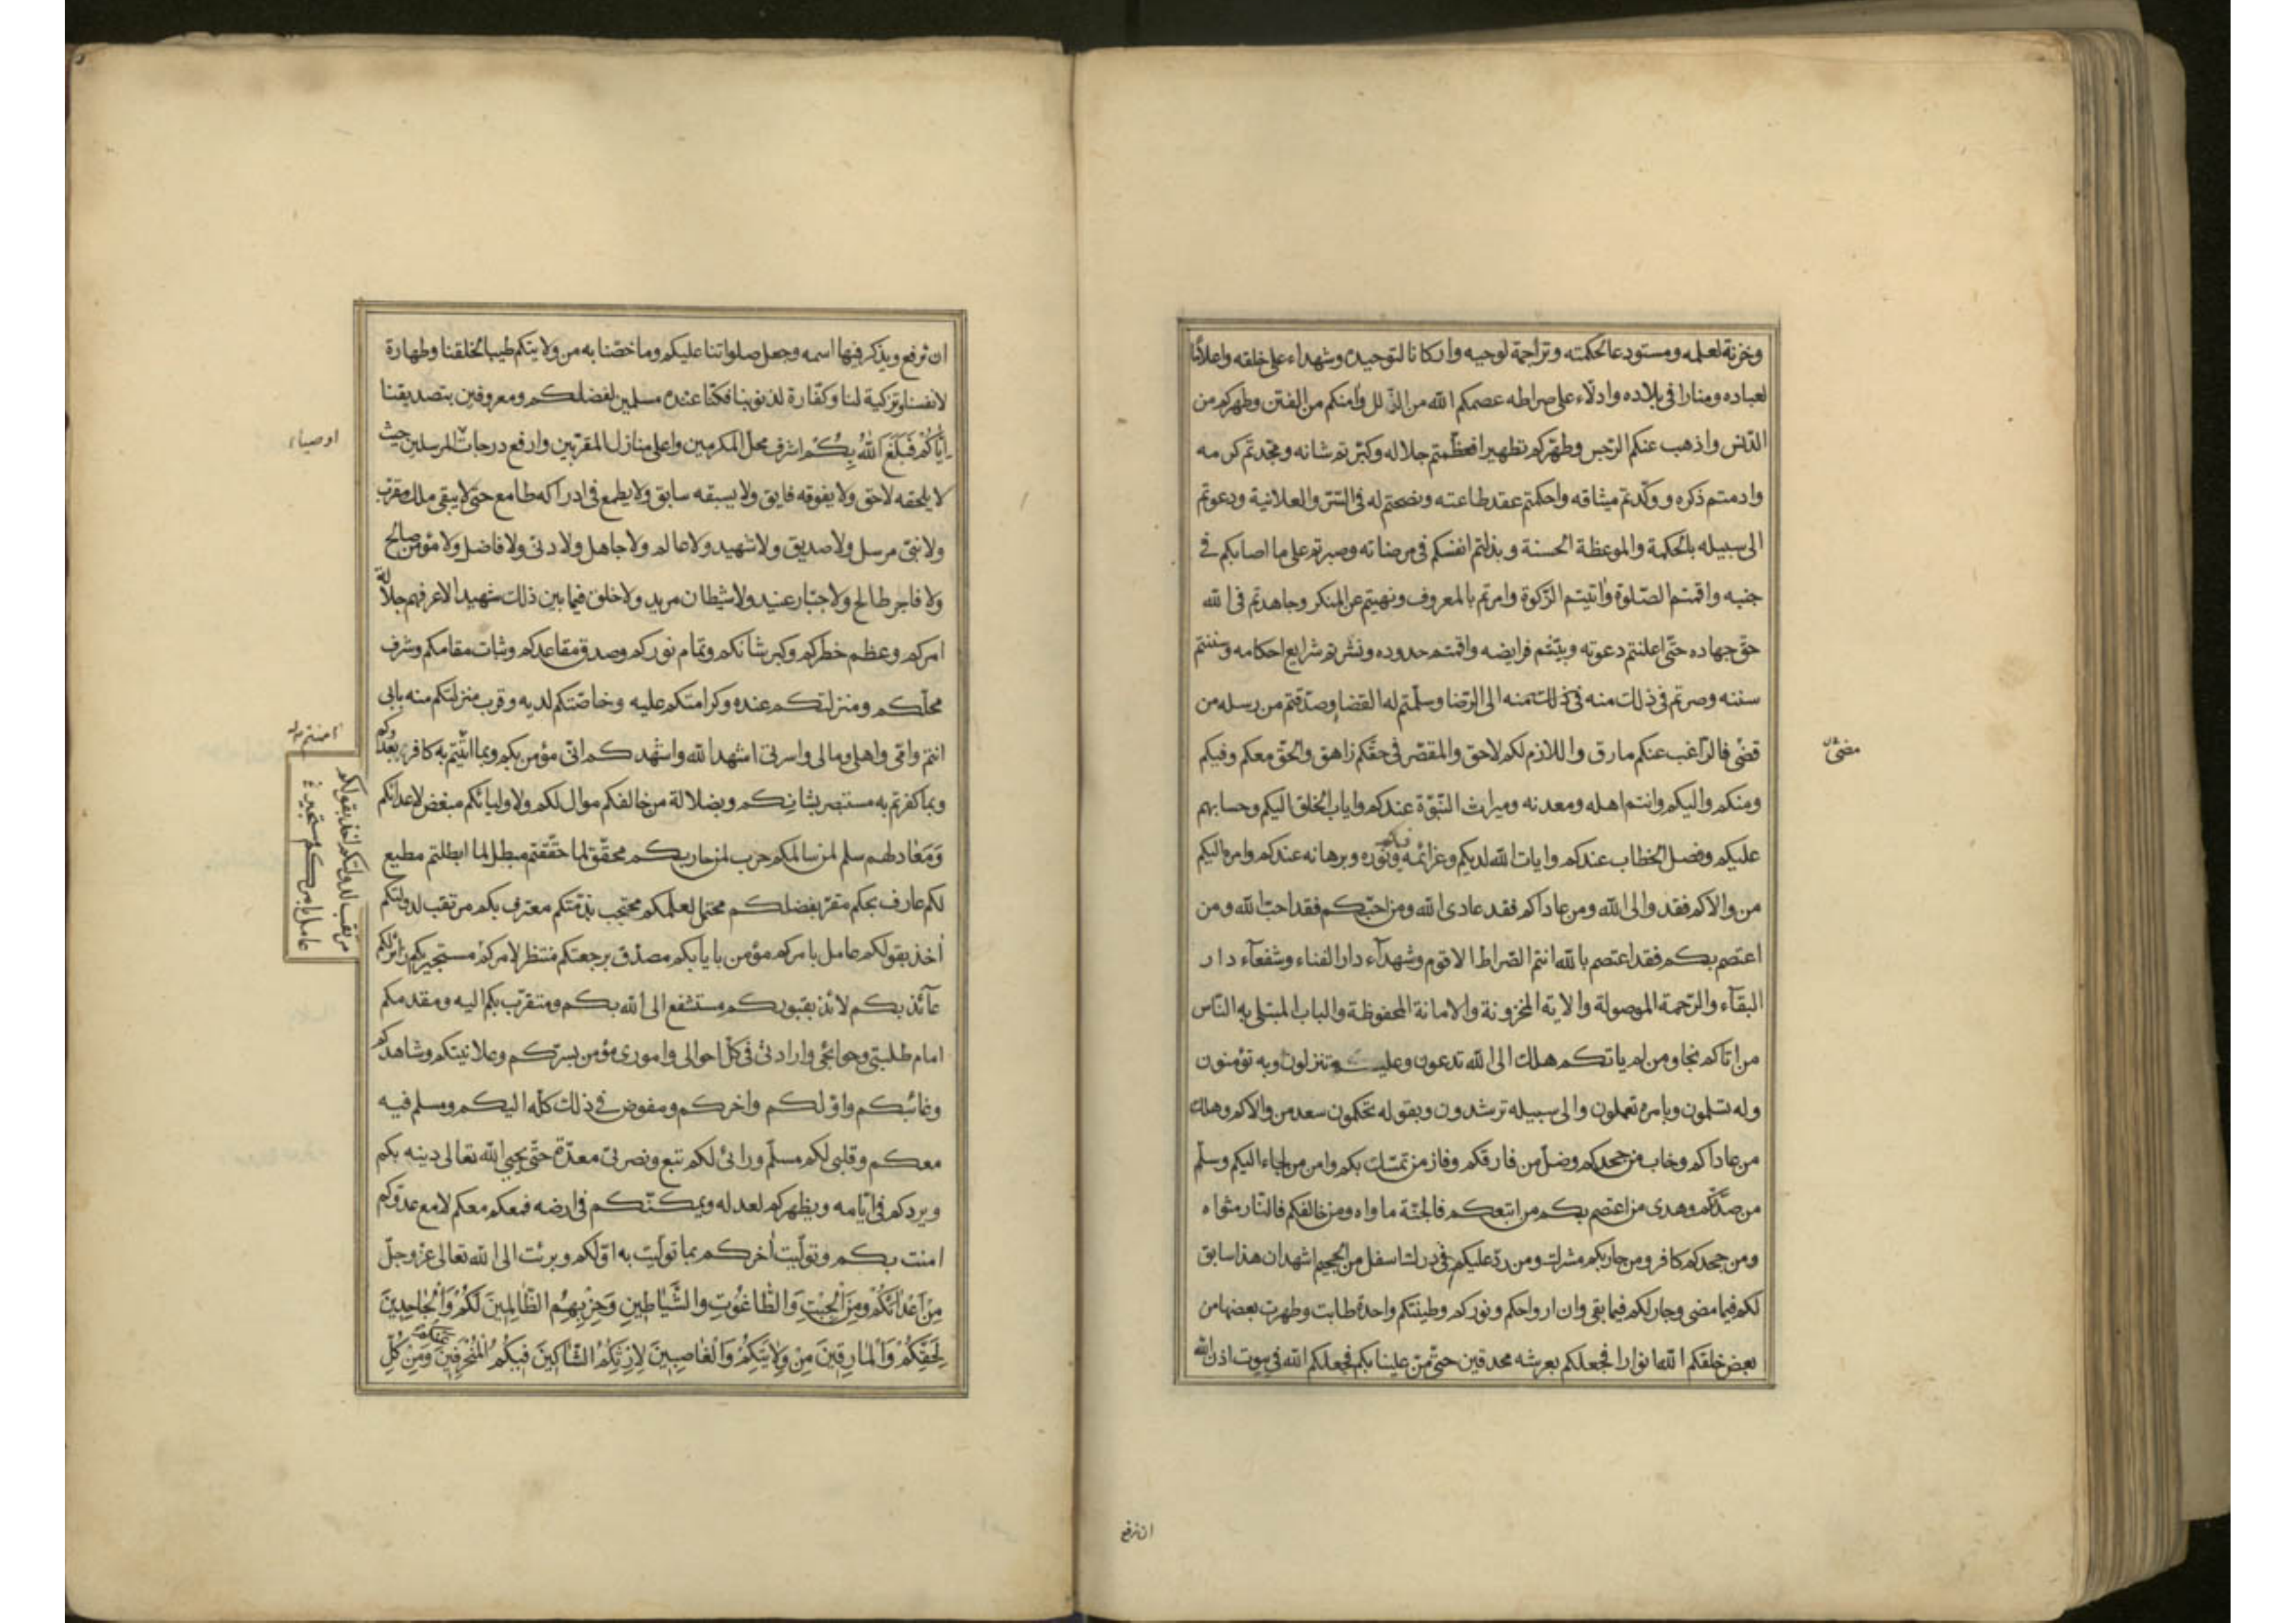 وخزنة لعلمه ومستودعا لحكمته وتراجمة لوحيه واركانا لتوحيده وشهداء على خلقه واعلاما
لعباده ومنارا فى بلاده وادلّاء على صراطه عصمكم الله من الزّلل وآمنكم من الفتن وطهركم من
الدّنس واذهب عنكم الرّجس وطهّركم تطهيرا فعظّمتم جلاله وكبّرتم شانه ومجّدتم كرمه
وادمتم ذكره ووكّدتم ميثاقه واحكمتم عقد طاعته ونصحتم له فى السّرّ والعلانية ودعوتم
الى سبيله بالحكمة والموعظة الحسنة وبذلتم انفسكم فى مرضاته وصبرتم على ما اصابكم فى
جنبه واقمتم الصّلوة وآتيتم الزّكوة وامرتم بالمعروف ونهيتم عن المنكر وجاهدتم فى الله
حقّ جهاده حتّى اعلنتم دعوته وبيّنتم فرايضه واقمتم حدوده ونشرتم شرايع احكامه وسننتم
سننه وصرتم فى ذلك منه فى ذلك منه الى الرّضا وسلّمتم له القضا وصدّقتم من رسله من
قضى فالرّاغب عنكم مارق واللازم لكم لاحق والمقصّر فى حقّكم زاهق والحقّ معكم وفيكم
مضىٰ
ومنكم واليكم وانتم اهله ومعدنه وميراث النّبوّة عندكم واياب الخلق اليكم وحسابهم
عليكم وفصل الخطاب عندكم وايات الله لديكم وعزائمه فيكم ونوره وبرهانه عندكم وامره اليكم
من والاكم فقد والى الله ومن عاداكم فقد عادى الله ومن احبّكم فقد احبّ الله ومن
اعتصم بكم فقد اعتصم بالله انتم الصّراط الاقوم وشهدآء دار الفناء وشفعآء دار
البقآء والرّحمة الموصولة والاية المخزونة والامانة المحفوظة والباب المبتلى به النّاس
من اتاكم نجا ومن لم ياتكم هلك الى الله تدعون وعليه تنزلون وبه تؤمنون
وله تسلمون وبامره تعملون والى سبيله ترشدون وبقوله تحكمون سعد من والاكم وهلك
من عاداكم وخاب من جحدكم وضلّ من فارقكم وفاز من تمسّك بكم وامن من لجاء اليكم وسلّم
من صدّكم وهدى من اعتصم بكم من اتبعكم فالجنّة ماواه ومن خالفكم فالنّار مثواه
ومن جحدكم كافر ومن حاربكم مشرك ومن ردّ عليكم فى درك اسفل من الجحيم اشهد ان هذا سابق
لكم فيما مضى وجار لكم فيما بقى وان ارواحكم ونوركم وطينتكم واحدة طابت وطهرت بعضها من
بعض خلقكم الله انوارا فجعلكم بعرشه محدقين حتّى منّ علينا بكم فجعلكم الله فى بيوت اذن الله
ان ترفع
ان ترفع ويذكر فيها اسمه وجعل صلواتنا عليكم وما خصّنا به من ولايتكم طيبا لخلقنا وطهارة
لانفسنا وتزكية لنا وكفّارة لذنوبنا فكنّا عنده مسلمين لفضلكم ومعروفين بتصديقنا
ايّاكُم فَبَلَغَ اللهُ بِكُم اشرف محلّ المكرمين واعلى منازل المقرّبين وارفع درجات المرسلين حيث
اوصياء
لا يلحقه لاحق ولا يفوقه فايق ولا يسبقه سابق ولا يطمع فى ادراكه طامع حتّى لا يبقى ملك مقرّب
ولا نبىّ مرسل ولا صديق ولا شهيد ولا عالم ولا جاهل ولا دنىّ ولا فاضل ولا مؤمن صالح
ولا فاجر طالح ولا جبّار عنيد ولا شيطان مريد ولا خلق فيما بين ذلك شهيد الا عرفهم جلالة
امركم وعظم خطركم وكبر شانكم وتمام نوركم وصدق مقاعدكم وثبات مقامكم وشرف
محلّكم ومنزلتكم عنده وكرامتكم عليه وخاصّتكم لديه وقرب منزلتكم منه بابى
انتم وامّى واهلى ومالى واسرتى اشهد الله واشهدكم انّى مؤمن بكم وبما اتيتم به كافر بعدوّكم
آمنتم
وبما كفرتم به مستبصر بشانكم وبضلالة من خالفكم موال لكم ولاوليائكم مبغض لاعدائكم
وَمَعاد لهم سلم لمن سالمكم حرب لمن حاربكم محقّق لما حقّقتم مبطل لما ابطلتم مطيع
لكم عارف بحكم مقرّ بفضلكم محتمل لعلمكم محتجب بذمّتكم معترف بكم مرتقب لدولتكم
آخذ بقولكم عامل بامركم مؤمن بايابكم مصدّق برجعتكم منتظر لامركم مستجير بكم زائر لكم
مرتقب لدولتكم آخذ بقولكم
عامل بامركم مستجير
عآئذ بكم لائذ بقبوركم مستشفع الى الله بكم ومتقرّب بكم اليه ومقدمكم
امام طلبتى وحوائجى وارادتى فى كلّ احوالى وامورى مؤمن بسرّكم وعلانيتكم وشاهدكم
وغائبكم واوّلكم واخركم ومفوض فى ذلك كلّه اليكم ومسلم فيه
معكم وقلبى لكم مسلّم ورائى لكم تبع ونصرتى معدّة حتّى يحيى الله تعالى دينه بكم
ويردكم فى ايّامه ويظهركم لعدله ويمكّنكم فى ارضه فمعكم معكم لا مع عدوّكم
امنت بكم وتولّيت آخركم بما تولّيت به اوّلكم وبرئت الى الله تعالى عزّ وجلّ
مِنْ اَعْدآئِكُمْ ومِنَ الْجِبْتِ وَالطّاغُوتِ والشَّيَاطِينِ وَحِزْبِهِمُ الظّالِمِينَ لَكُمْ وَالْجَاحِدِينَ
لِحَقِّكُمْ وَالْمارِقِينَ مِنْ وِلايَتِكُمْ وَالْغاصِبِينَ لِاِرْثِكُمُ الشّاكِينَ فِيكُمُ الْمُنْحَرِفِينَ عنكم وَمِنْ كُلِّ